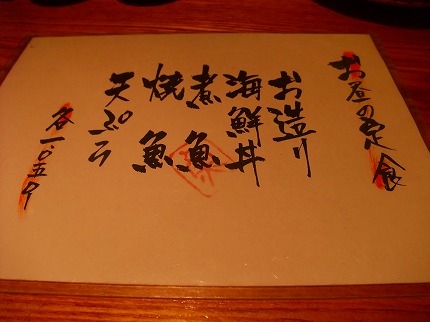 お昼の定食
お造り
海鮮丼
煮魚
焼魚
天ぷら
各一、〇五〇